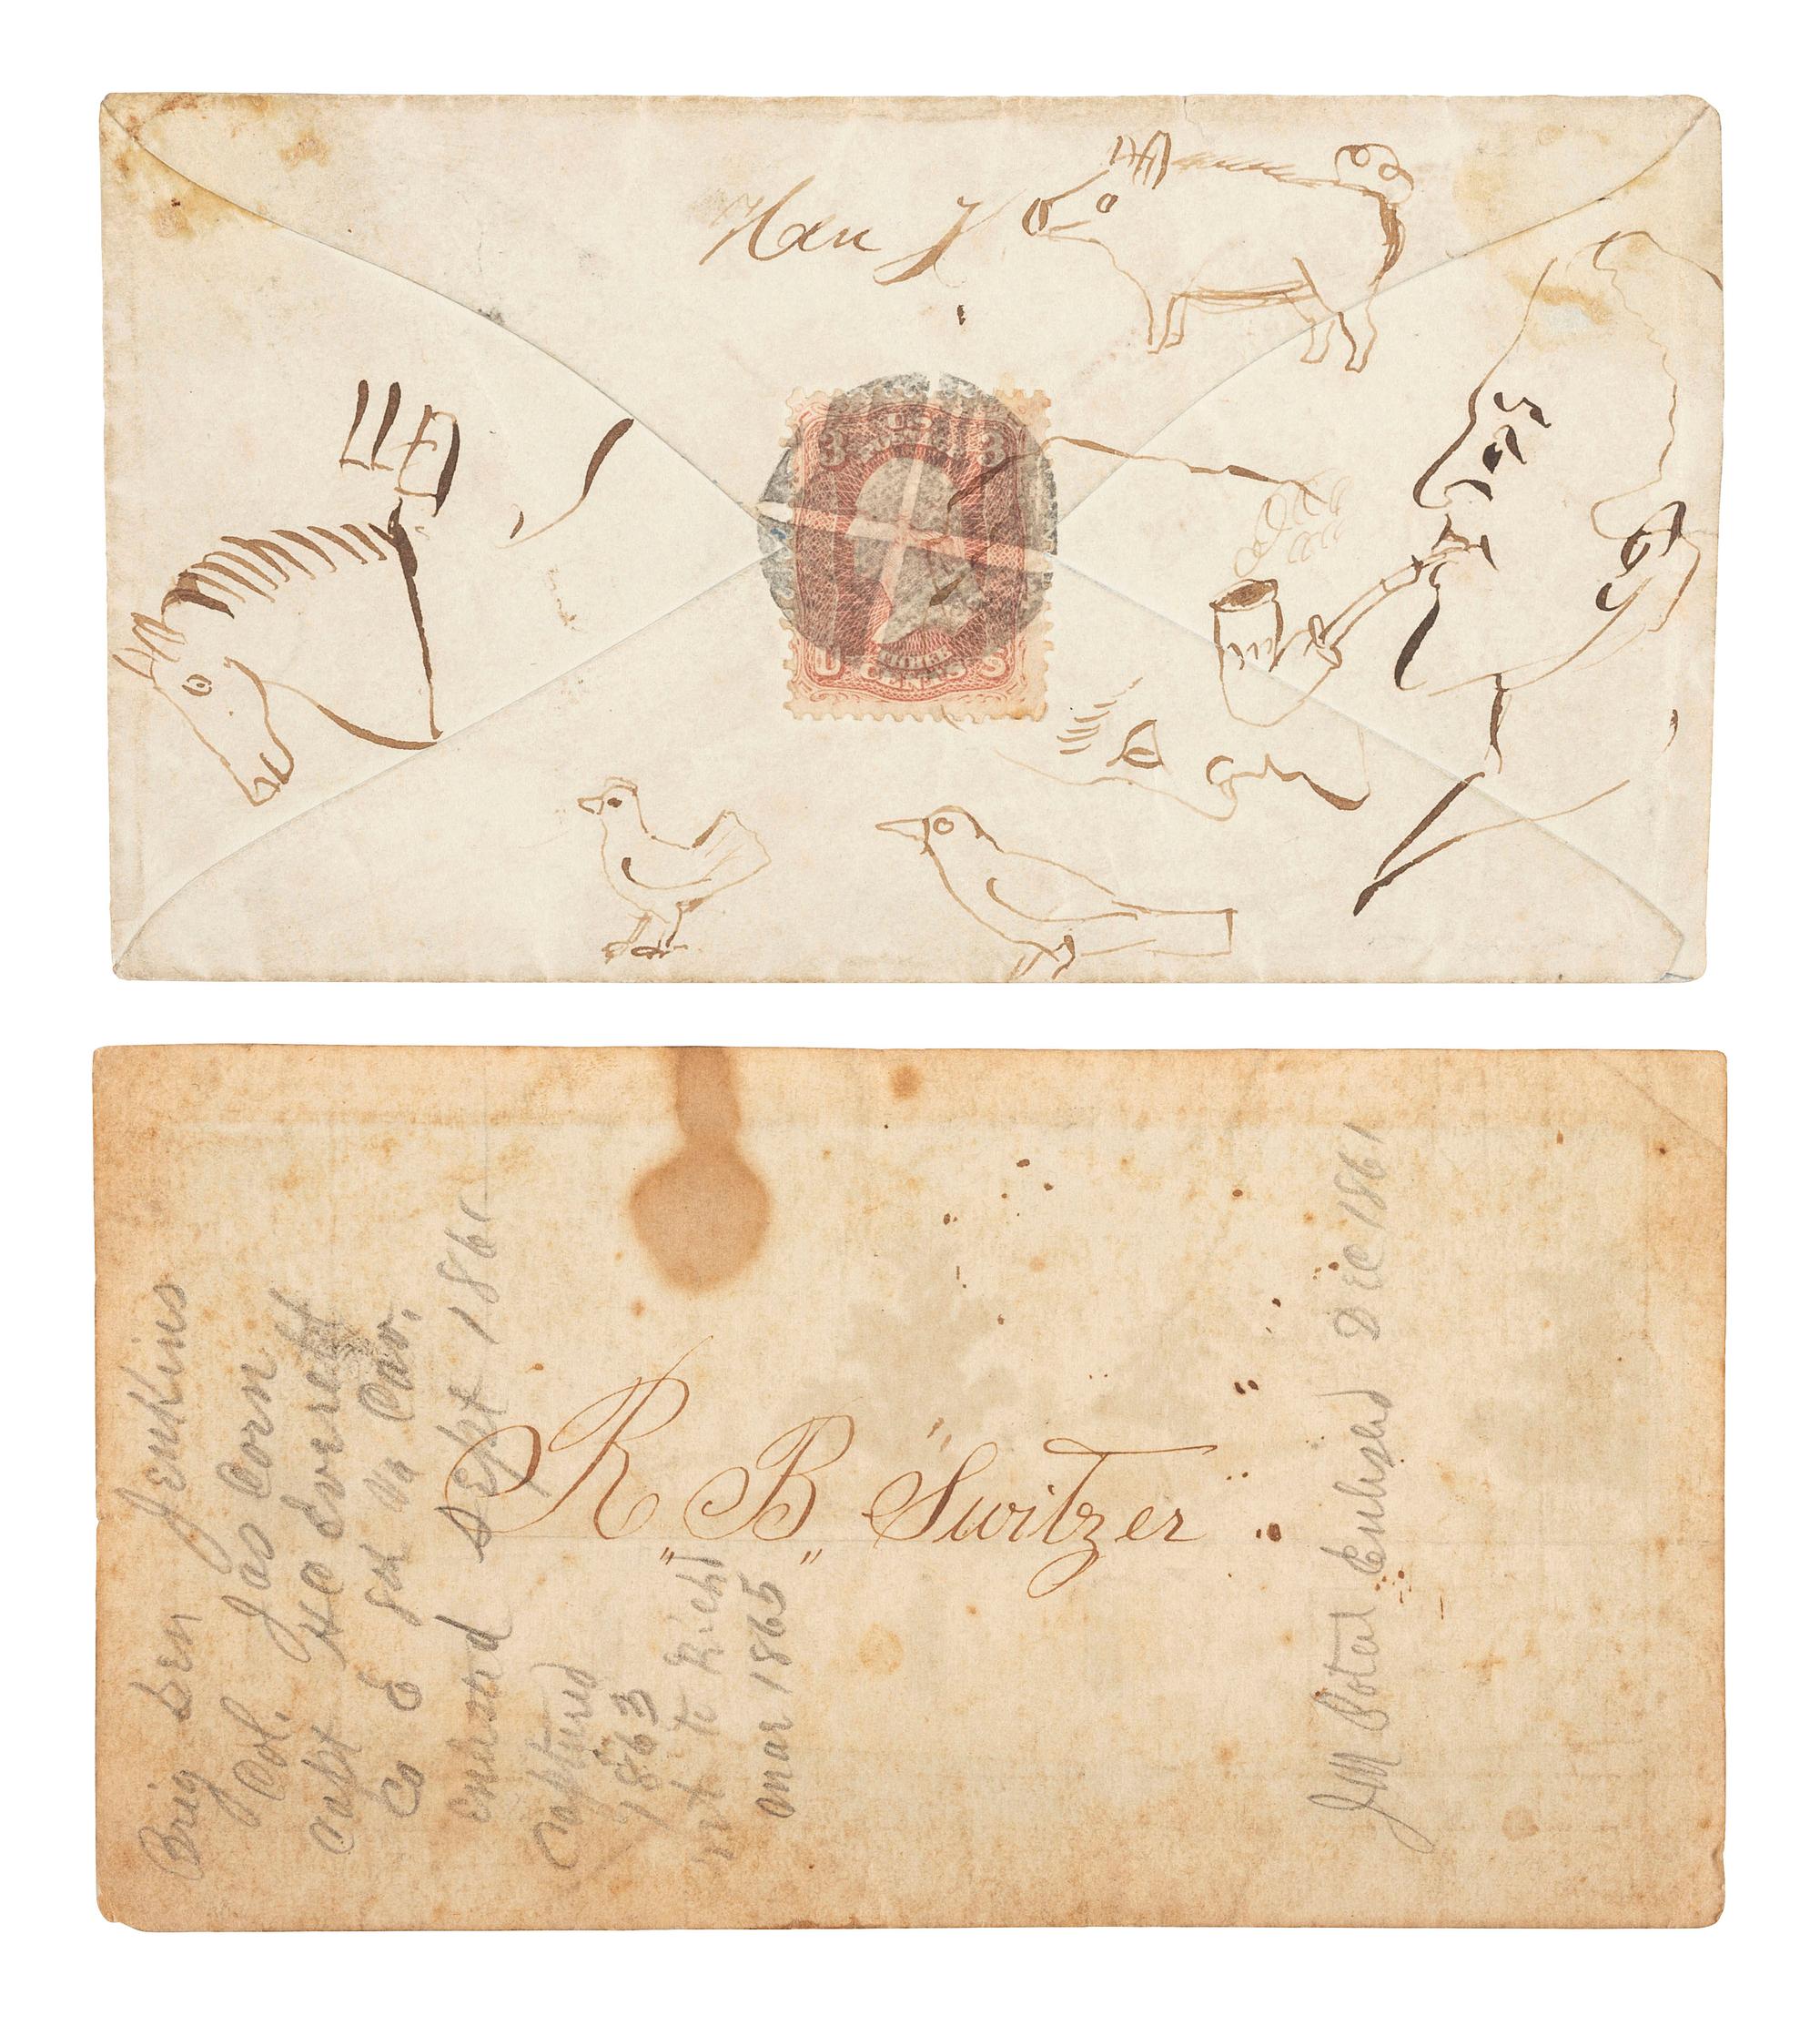 Hen
3 U.S. POSTAGE 3
U THREE CENTS S
Brig Gen Jenkins
Col. Jas Corn
Capt HC Everett
Co E 8th Va Cav.
Sept 1861
Captured
1863
to Richt
Mar 1865
R. B. Switzer
JM Poteet Enlisted Dec 1861